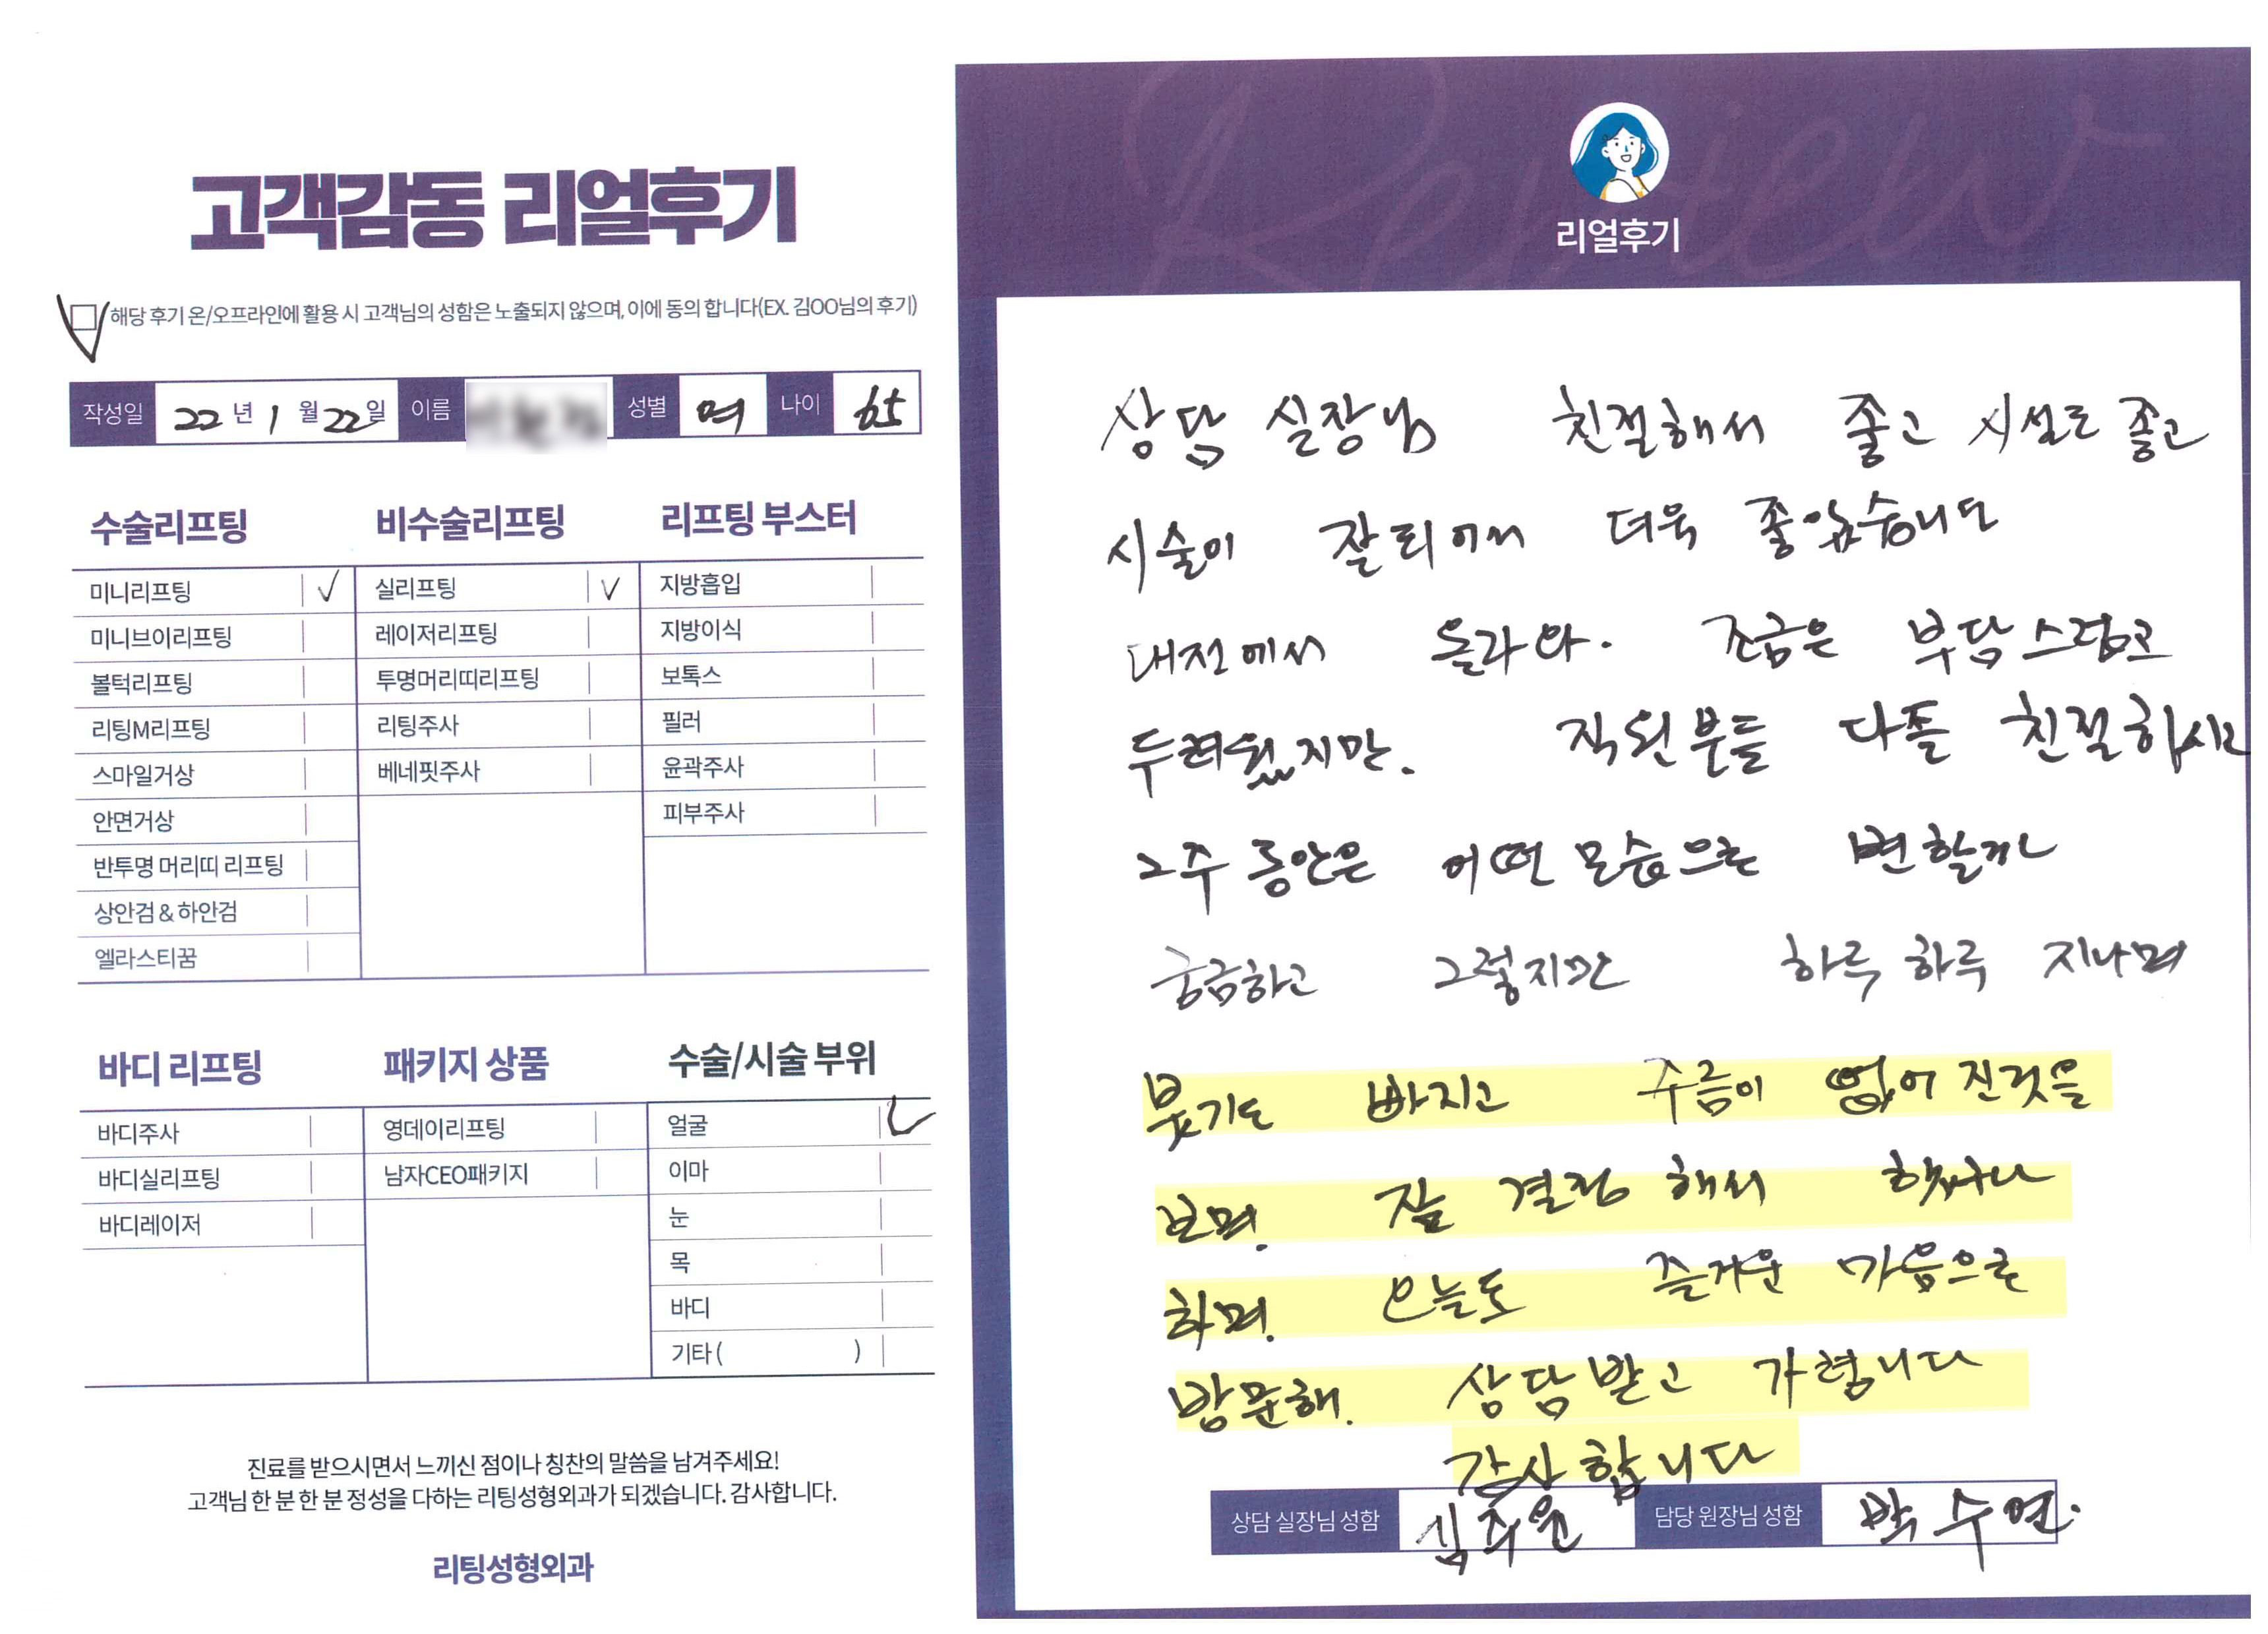 고객감동 리얼후기
해당 후기 온/오프라인에 활용 시 고객님의 성함은 노출되지 않으며, 이에 동의 합니다(EX. 김OO님의 후기)
작성일 22년 1월 22일 이름 성별 여 나이 65
수술리프팅
미니리프팅 ✓
미니브이리프팅
볼턱리프팅
리팅M리프팅
스마일거상
안면거상
반투명 머리띠 리프팅
상안검 & 하안검
엘라스티꿈
비수술리프팅
실리프팅 ✓
레이저리프팅
투명머리띠리프팅
리팅주사
베네핏주사
리프팅 부스터
지방흡입
지방이식
보톡스
필러
윤곽주사
피부주사
바디 리프팅
바디주사
바디실리프팅
바디레이저
패키지 상품
영데이리프팅
남자CEO패키지
수술/시술 부위
얼굴 ✓
이마
눈
목
바디
기타 ( )
진료를 받으시면서 느끼신 점이나 칭찬의 말씀을 남겨주세요!
고객님 한 분 한 분 정성을 다하는 리팅성형외과가 되겠습니다. 감사합니다.
리팅성형외과
Review
리얼후기
상담 실장님 친절해서 좋고 시설도 좋고
시술이 잘되어서 더욱 좋았습니다
대전에서 올라와. 조금은 부담스럽고
두려웠지만. 직원분들 다들 친절하시고
2주 동안은 어떤 모습으로 변할까
궁금하고 그렇지만 하루 하루 지나며
붓기도 빠지고 주름이 없어 진것을
보며. 잘 결정 해서 했구나
하며. 오늘도 즐거운 마음으로
방문해. 상담받고 가렵니다
감사합니다
상담 실장님 성함 담당 원장님 성함 박수연.